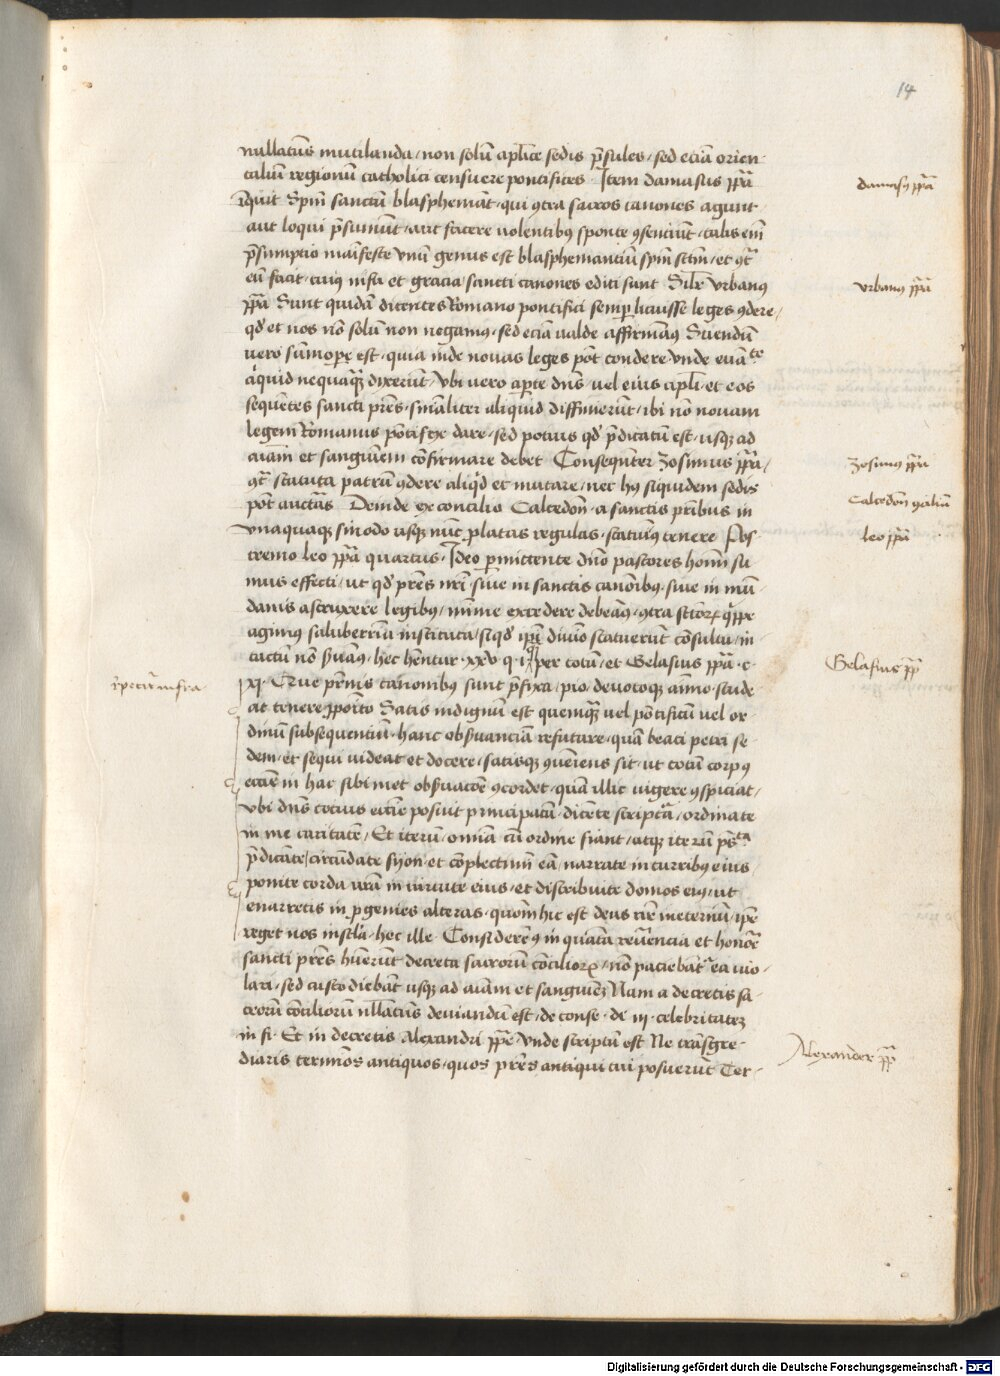 14
nullatiꝰ mutilanda / non solū apl̄ice sedis p̄sules / sed eciā orien-
taliū regionū catholici censuere pontifices · Item damasus pp̄a
inquit Spm̄ sanctū blasphemāt · qui ꝯtra sacros canones agunt ·
aut loqui p̄sumūt / aut facere volentibꝰ sponte ꝯsenciūt / talis em̄
p̄sumptio manifeste vnū genus est blasphemantiū spm̄ sctm̄ / et ꝯtͣ
eū facit · cuiꝰ nisu et gracia sancti canones editi sunt · Silr̄ Vrbanꝰ
pp̄a Sunt quidā dicentes Romano pontifici semp̲ licuisse leges ꝯdere /
qd̄ et nos nō solū non negamꝰ · sed eciā valde affirmamꝰ Sciendū
vero sūmope est · quia inde novas leges pōt condere · vnde euāᵗᵉ
aliquid nequaqᷓ dixerūt / Vbi vero ap̲te dn̄s · vel eius apl̄i · et eos
sequētes sancti pr̄es · sināliter aliquid diffinierūt · ibi nō novam
legem Romanus pōtifex dare · sed potius qd̄ p̄dicatū est · usqꝫ ad
aīam et sanguinem cōfirmare debet Consequēter Zosimus pp̄a /
ꝯtͣ statuta patrū ꝯdere aliqͥd et mutare / nec hꝰ siquidem sedis
pōt auctās Deinde ex concilio Calcedon̄ · a sanctis pr̄ibus in
vnaquaqꝫ sinodo usqꝫ nūc platas regulas · statuimꝰ tenere Pos
tremo leo pp̄a quartus · Ideo p̲mittente dn̄o pastores hoīm su
mus effecti / ut qd̄ pr̄es nr̄i siue in sanctis canōibus · siue in mū
danis astruxere legibꝰ / minime excedere debeamꝰ · ꝯtra sctōrꝝ qͥppe
agimus saluberrīa instituta / si qd̄ ipi diuīo statuerūt cōsultu / in
tactū nō seruamꝰ · hec hn̄tur · xxv · q · i · p̲ totum / et Gelasius pp̄a · c ·
xij · Que p̄mis canonibus sunt p̄fixa / pio · devotoqꝫ aīmo · stude
at tenere ppōito Satis indignū est quemqᷓ vel pōtificū vel or
dinū subsequentiū · hanc obseruanciā refutare · quā beati petri se
dem · et sequi videat et docere / satisqꝫ ꝯueniens sit · ut totū corpꝰ
eccīe in hac sibimet obseruacōe ꝯcordet · quā illic vigere ꝯspiciat /
vbi dn̄s totius eccīe posuit principatū / dicēte scriptͣa / ordinate
in me caritatē / Et iterū / omīa cū ordine fiant / atqꝫ iterū psᵗᵃ
p̄dicāte / circūdate syon · et cōplectimī eā / narrate in turribꝰ eius
ponite corda vrā in virtute eius / et distribuite domos eiꝰ / ut
enarretis in p̲genies alteras · quoniā hic est deus nr̄ in eternū / ipe
reget nos in scl̄a · hec ille Consideremꝰ in quāta reuerencia et honōe
sancti pr̄es habuerūt decreta sacrorum cōciliorꝝ / nō paciebātͬ ea vio-
lari / sed custodiebāt usqꝫ ad aīam et sanguinē Nam a decretis sa
crorū cōciliorū nullatiꝰ deviandū est / de conse · de iij · celebritatē
in fi · Et in decretis Alexandri pp̄e / vnde scriptū est Ne trāsgre-
diaris termīos antiquos / quos pr̄es antiqui tui posuerūt Ter-
damasꝰ pp̄a
vrbanꝰ pp̄a
Zosimus pp̄a
Calcedon̄ ꝯciliū
leo pp̄a
Gelasius pp̄
rēpetit̄ infra
Alexander pp̄
Digitalisierung gefördert durch die Deutsche Forschungsgemeinschaft - DFG